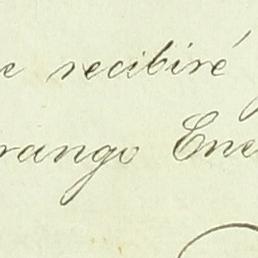 e recibiré
rango Ene